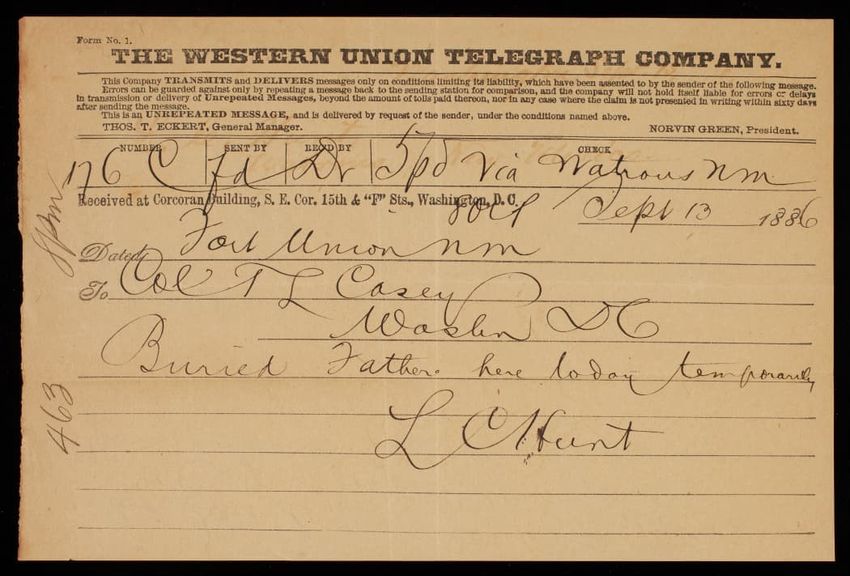 Form No. 1.
THE WESTERN UNION TELEGRAPH COMPANY.
This Company TRANSMITS and DELIVERS messages only on conditions limiting its liability, which have been assented to by the sender of the following message.
Errors can be guarded against only by repeating a message back to the sending station for comparison, and the company will not hold itself liable for errors or delays
in transmission or delivery of Unrepeated Messages, beyond the amount of tolls paid thereon, nor in any case where the claim is not presented in writing within sixty days
after sending the message.
This is an UNREPEATED MESSAGE, and is delivered by request of the sender, under the conditions named above.
THOS. T. ECKERT, General Manager. NORVIN GREEN, President.
NUMBER SENT BY REC'D BY CHECK
176 C Jd Dr 5pd Via Watrous NM
Received at Corcoran Building, S. E. Cor. 15th & "F" Sts., Washington, D. C.
Sept 13 1886
8pm
Dated Fort Union NM
To Col T L Casey
Washn DC
Buried Father here today temporarily
463
L C Hunt